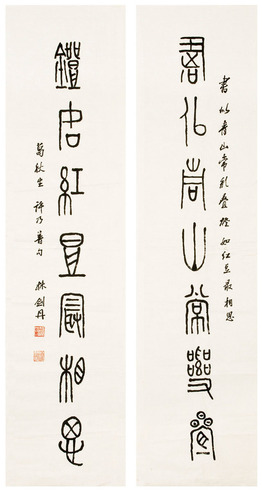 書似青山常亂疊
書似青山常乱叠燈如红豆最相思
鐙如紅豆最相思
葛秋生 許乃普句 林劍丹